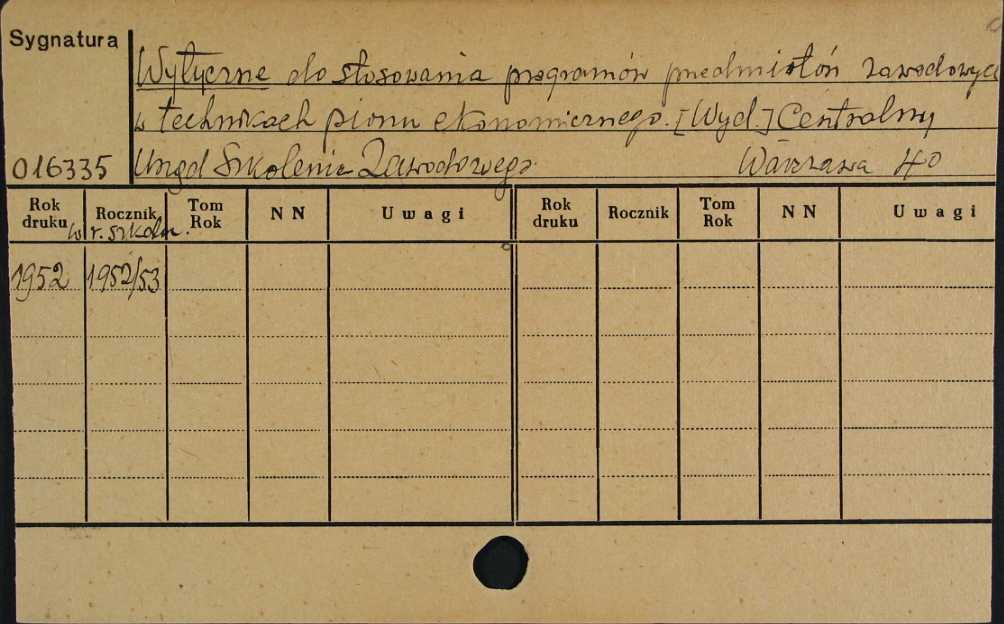 Sygnatura
Wytyczne do stosowania programów przedmiotów zawodowych
w technikach pionu ekonomicznego. [Wyd.] Centralny
016335 Urząd Szkolenia Zawodowego. Warszawa 4°
Rok druku Rocznik Tom Rok N N Uwagi Rok druku Rocznik Tom Rok N N Uwagi
w r. szkoln.
1952 1952/53